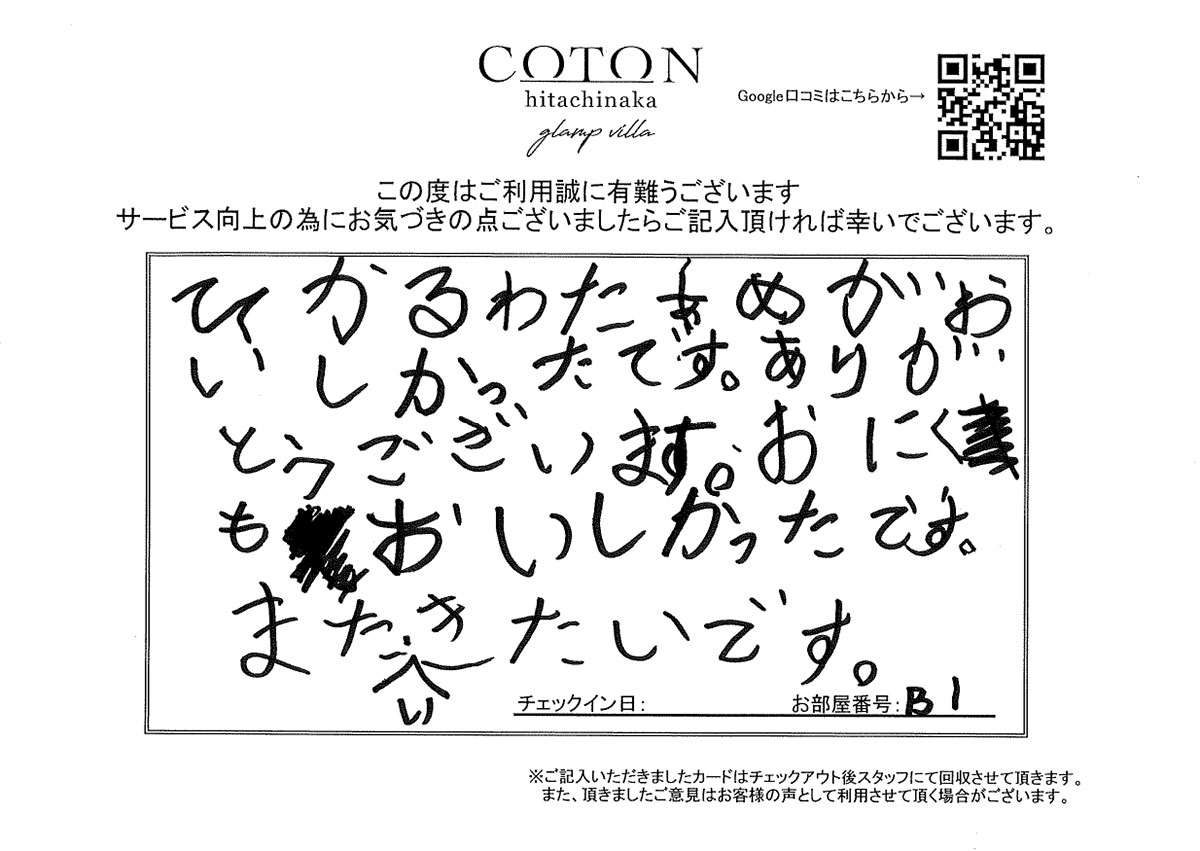 COTON
hitachinaka
glamp villa
Google口コミはこちらから→
この度はご利用誠に有難うございます
サービス向上の為にお気づきの点ございましたらご記入頂ければ幸いでございます。
ひかるわたあめがお
いしかったです。ありが
とうございます。おにく
もおいしかったです。
またきたいです。
チェックイン日:
お部屋番号:B1
※ご記入いただきましたカードはチェックアウト後スタッフにて回収させて頂きます。
また、頂きましたご意見はお客様の声として利用させて頂く場合がございます。